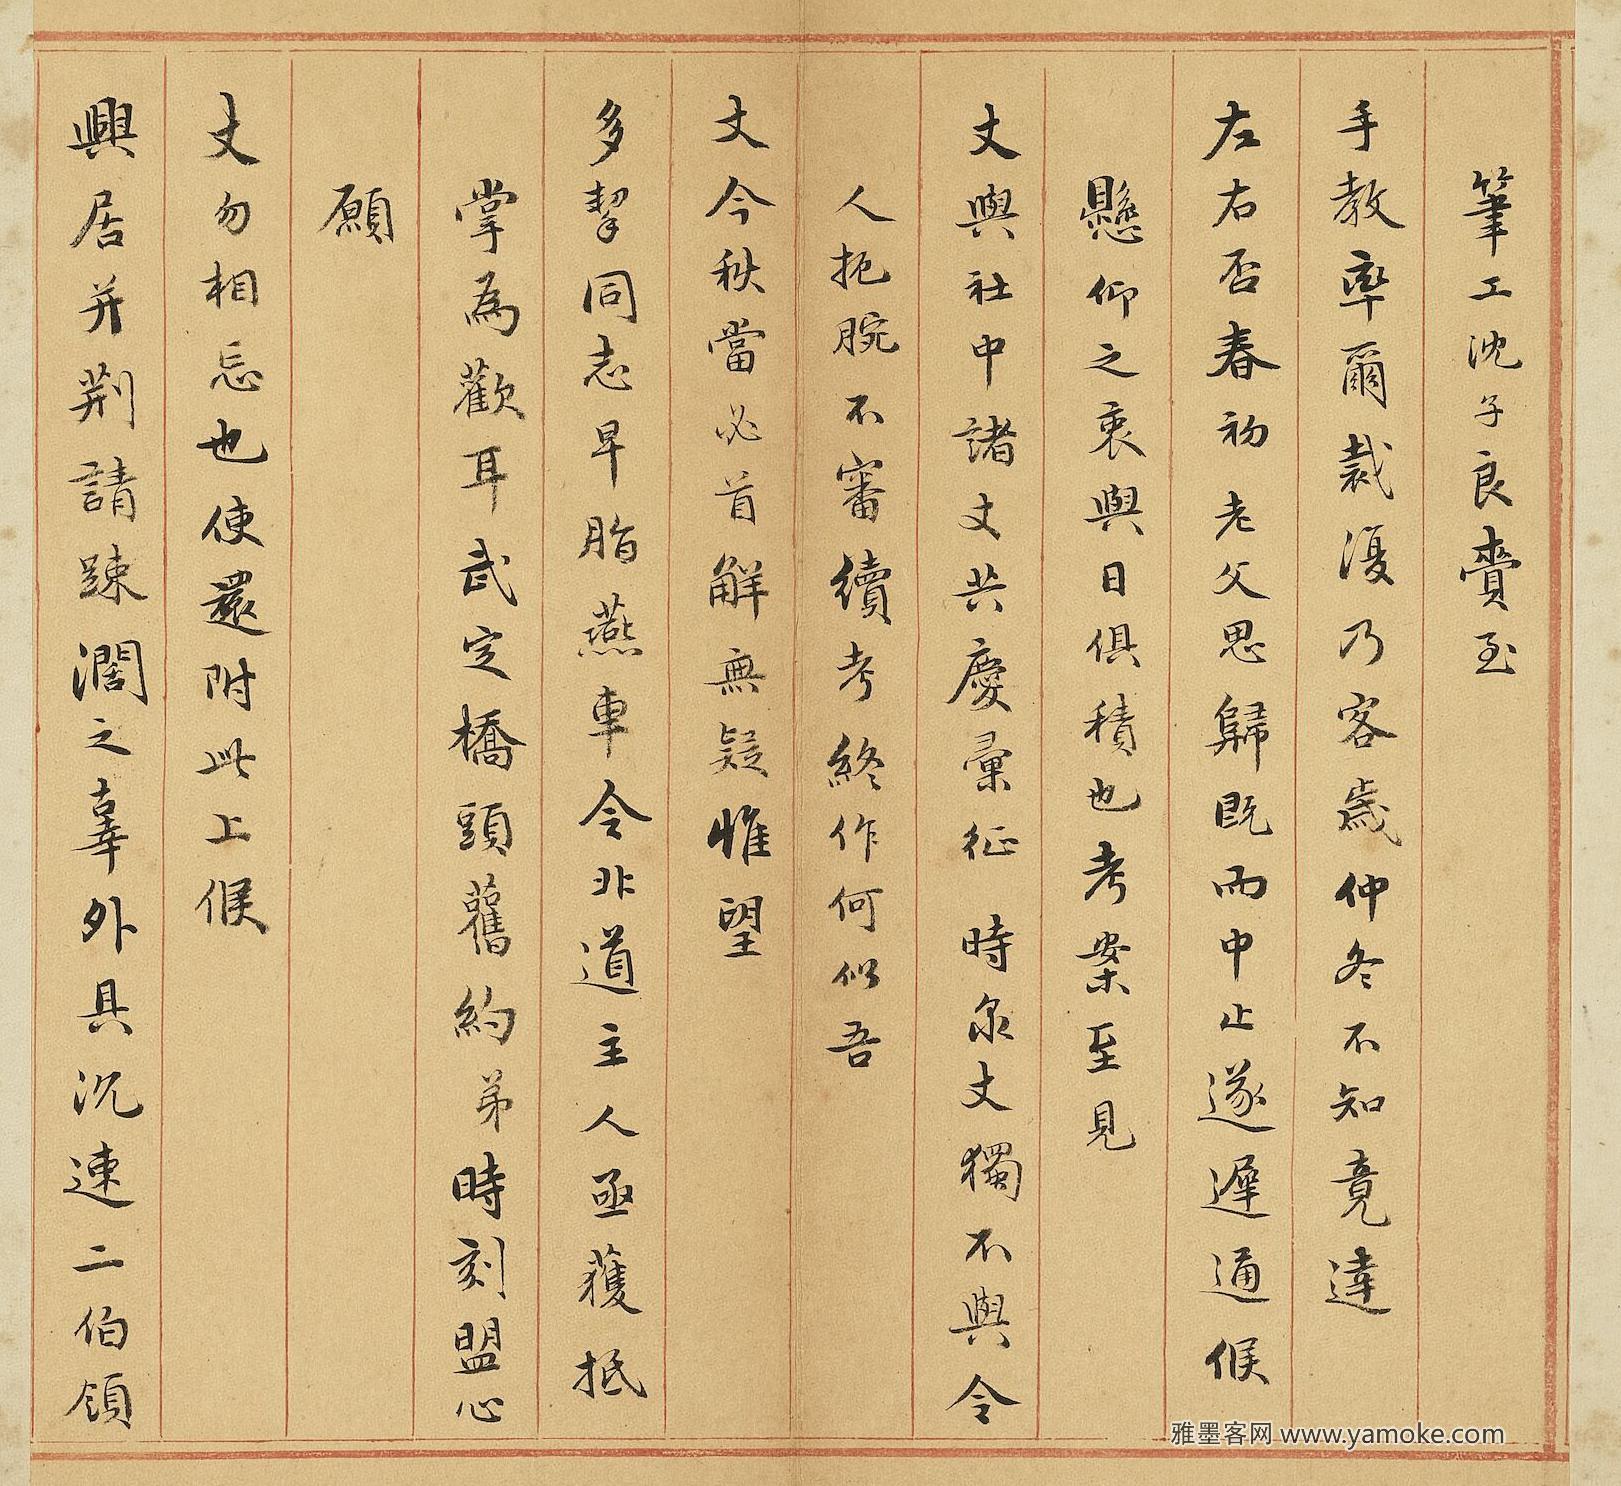 筆工沈子良賷至
手教率爾裁覆乃客歲仲冬不知竟達
左右否春初老父思歸既而中止遂遲通候
懸仰之衷與日俱積也考案至見
丈與社中諸丈共慶彙征時泉丈獨不與令
人扼腕不審續考終作何似吾
丈今秋當必首解無疑惟望
多挈同志早脂燕車令非道主人亟獲抵
掌為歡耳武定橋頭舊約弟時刻盟心
願
丈勿相忘也使還附此上候
興居并荆請踈濶之辜外具沉速二伯領
雅墨客网 www.yamoke.com